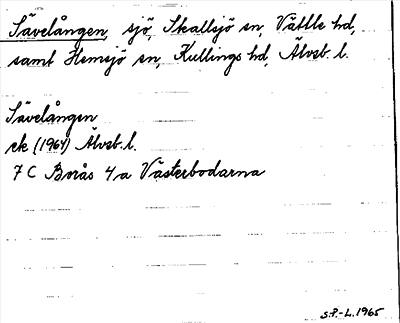 Sävelången, sjö, Skallsjö sn, Vättle hd,
samt Hemsjö sn, Kullings hd, Älvsb. l.
Sävelången
ek (1964) Älvsb. l.
7 C Borås 4 a Västerbodarna
S.P.-L. 1965